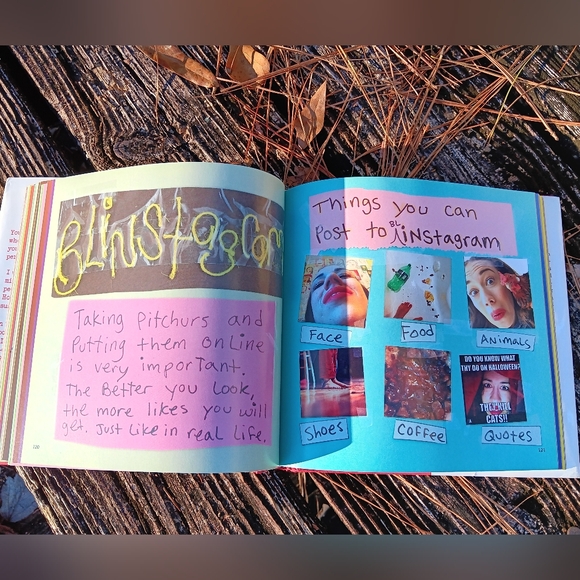 BLinstagram
Taking Pitchurs and
Putting them onLine
is very important.
The Better you Look,
the more likes you will
get. Just Like in real Life.
120
Things you can
Post to BLinstagram
Face
Food
AnimaLs
Shoes
Coffee
Quotes
DO YOU KNOW WHAT
THY DO ON HALLOWEEN?
THEY KILL
CATS!!
121